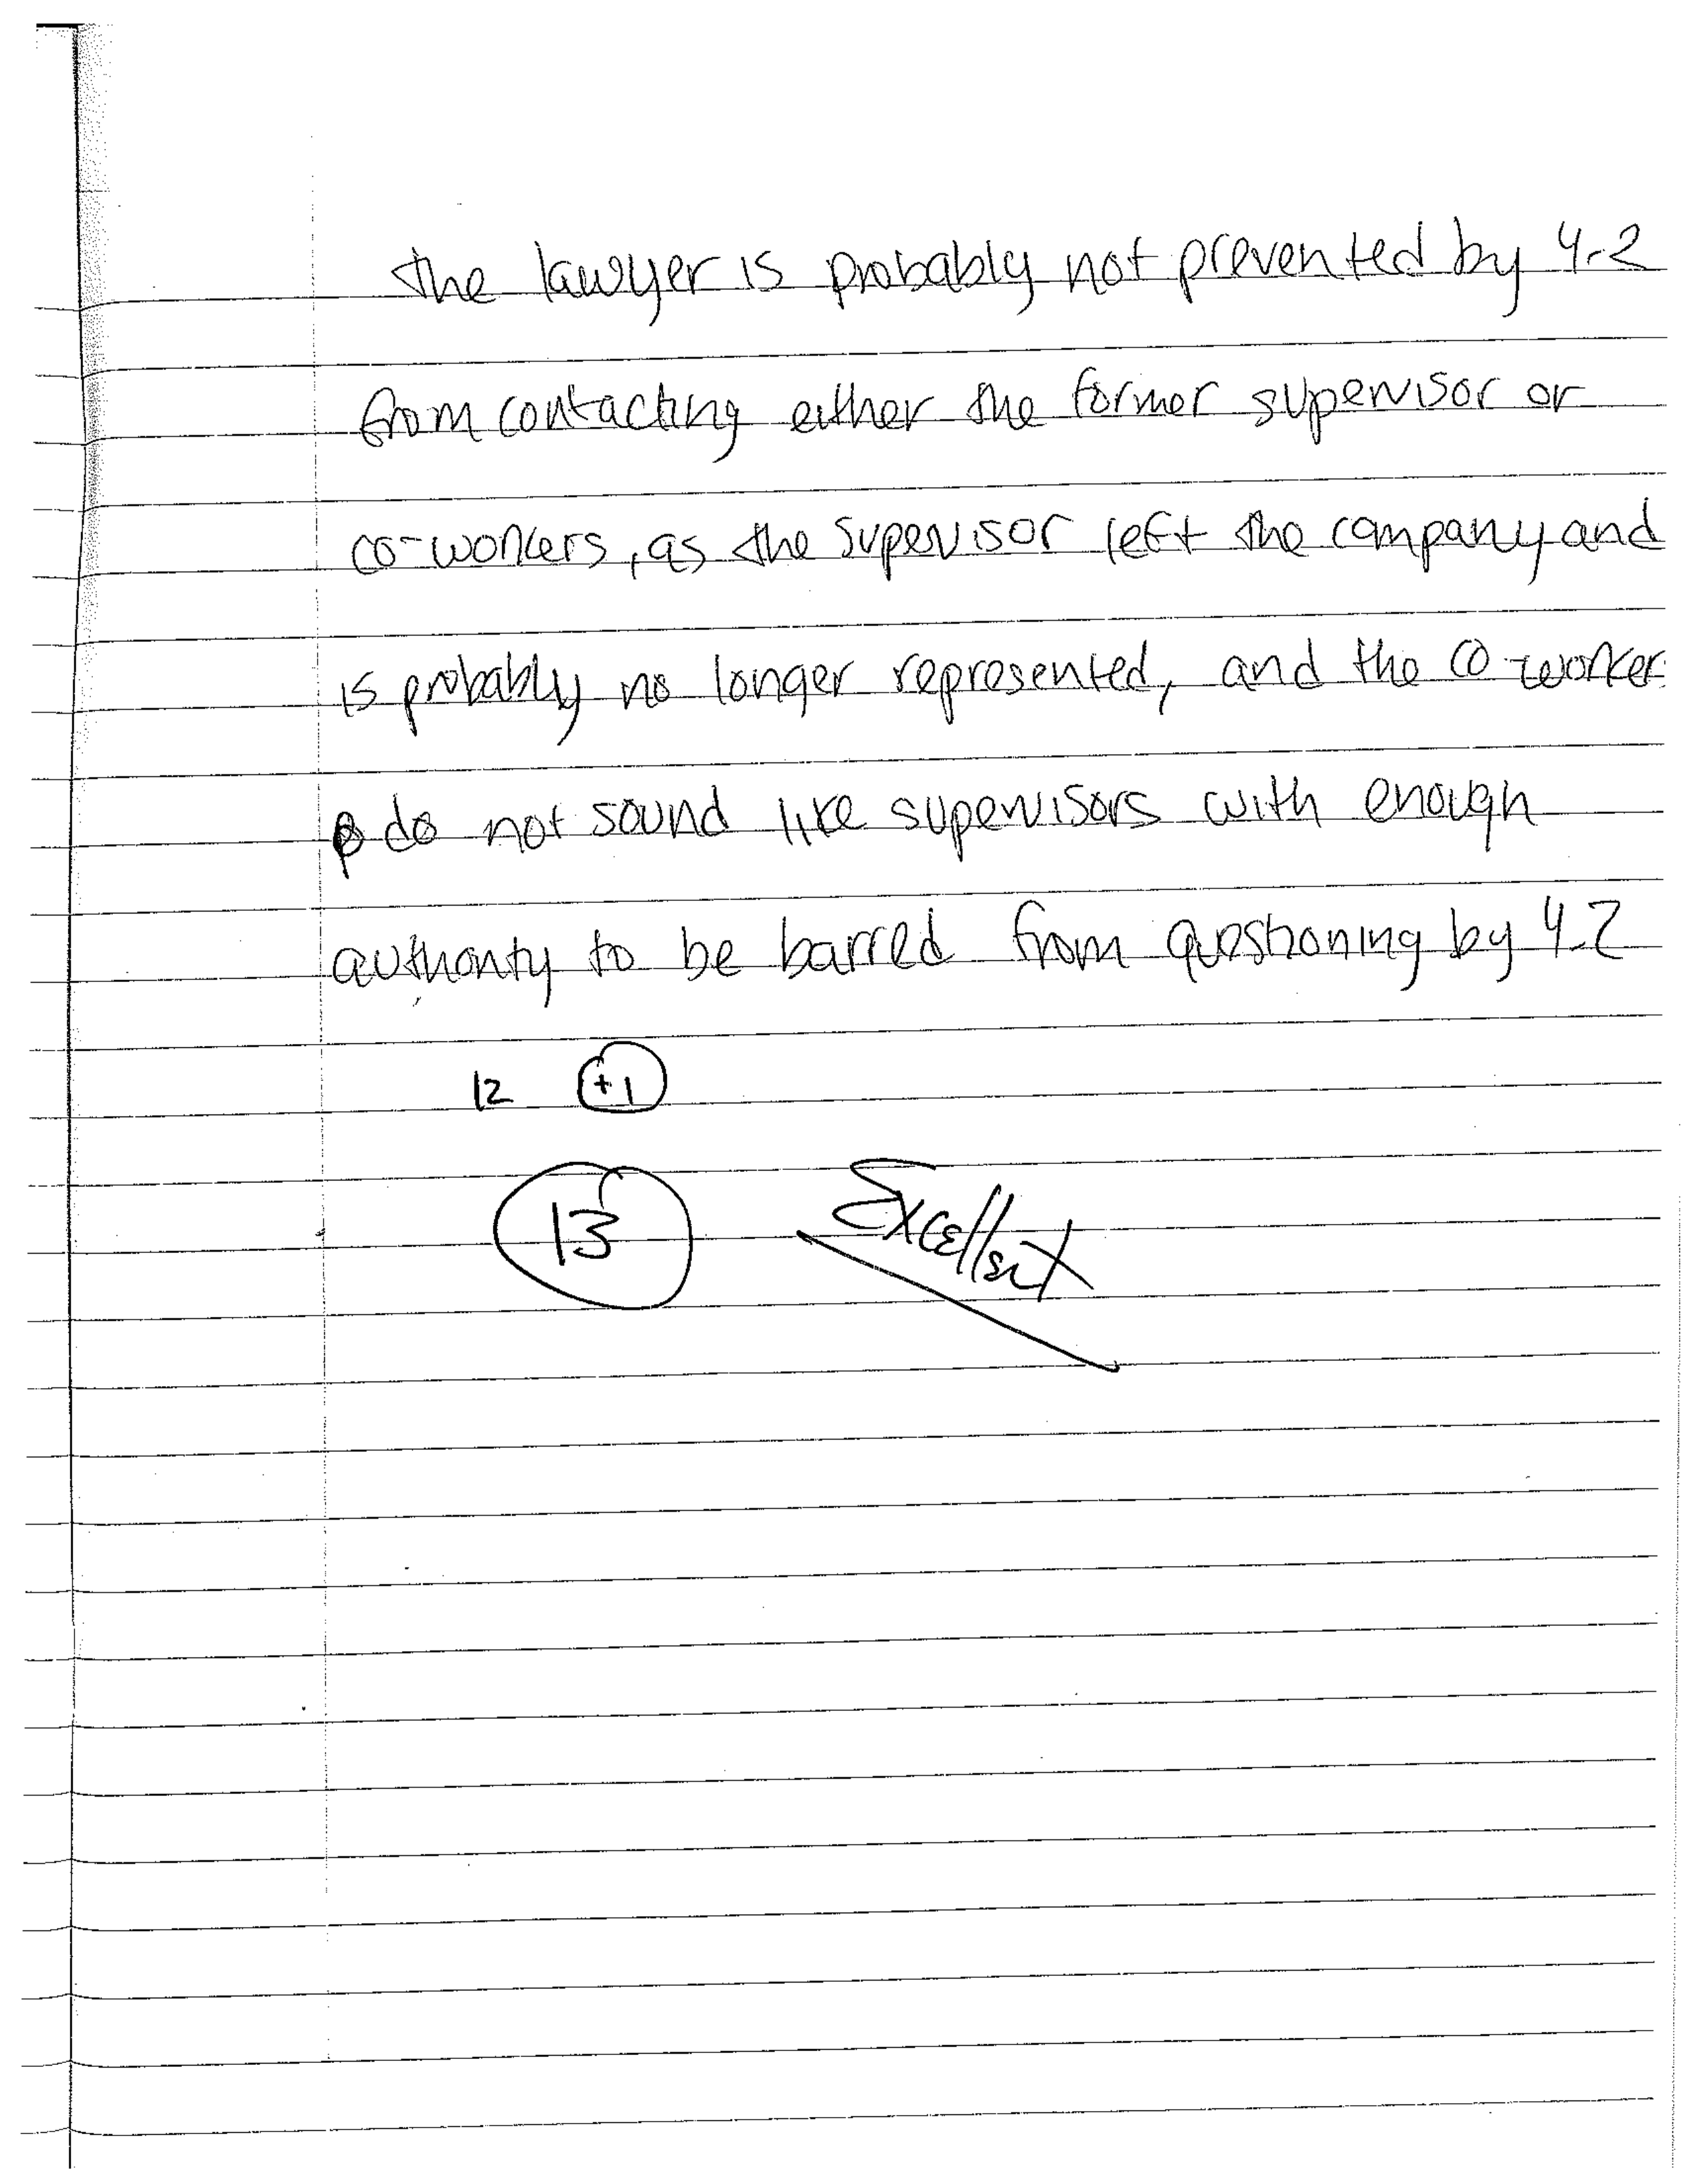 the lawyer is probably not prevented by 4.2
from contacting either the former supervisor or
co-workers, as the supervisor left the company and
is probably no longer represented, and the co-worker
do not sound like supervisors with enough
authority to be barred from questioning by 4.2
12 +1
13 Excellent